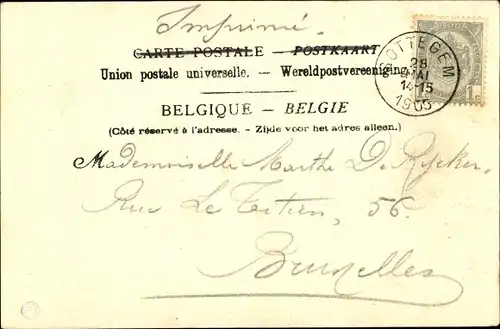 Imprimé.
CARTE POSTALE — POSTKAART
Union postale universelle. — Wereldpostvereeniging
BELGIQUE - BELGIE
(Côté réservé à l'adresse. - Zijde voor het adres alleen.)
SOTTEGEM
28
MAI
14-15
1905
1c
Mademoiselle Marthe De Rycker.
Rue Le Titien, 56.
Bruxelles